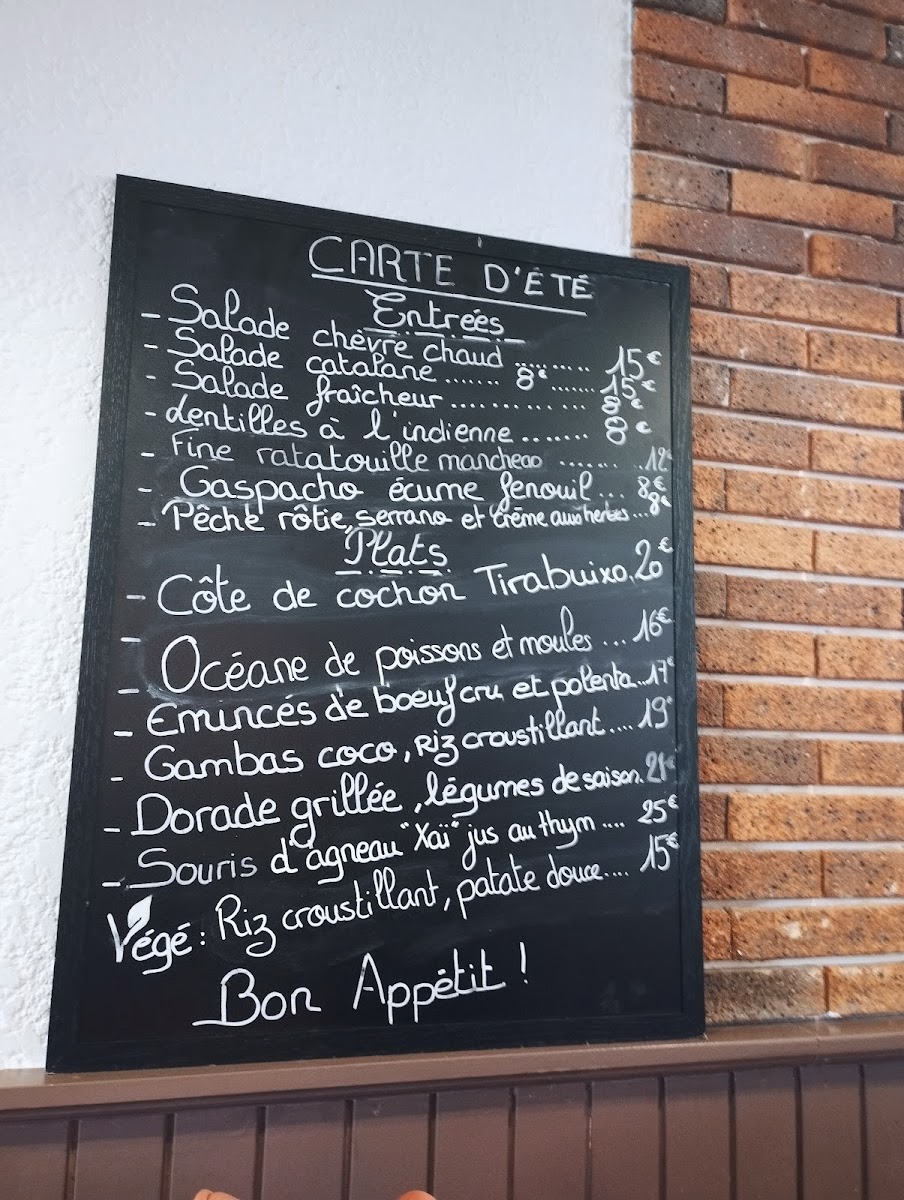 CARTE D'ÉTÉ
Entrées
- Salade chèvre chaud ......... 15€
- Salade catalane ...... 8€ ...... 15€
- Salade fraîcheur ............. 8€
- Lentilles à l'indienne ....... 8€
- Fine ratatouille manchego ........ 12€
- Gaspacho écume fenouil ... 8€
- Pêche rôtie, serrano et Crème aux herbes ... 8€
Plats
- Côte de cochon Tirabuixo. 20€
- Océane de poissons et moules ... 16€
- Emincés de boeuf cru et polenta .. 17€
- Gambas coco, Riz croustillant .... 19€
- Dorade grillée, légumes de saison. 21€
- Souris d'agneau "Xaï" jus au thym .... 25€
- Végé : Riz croustillant, patate douce .... 15€
Bon Appétit !